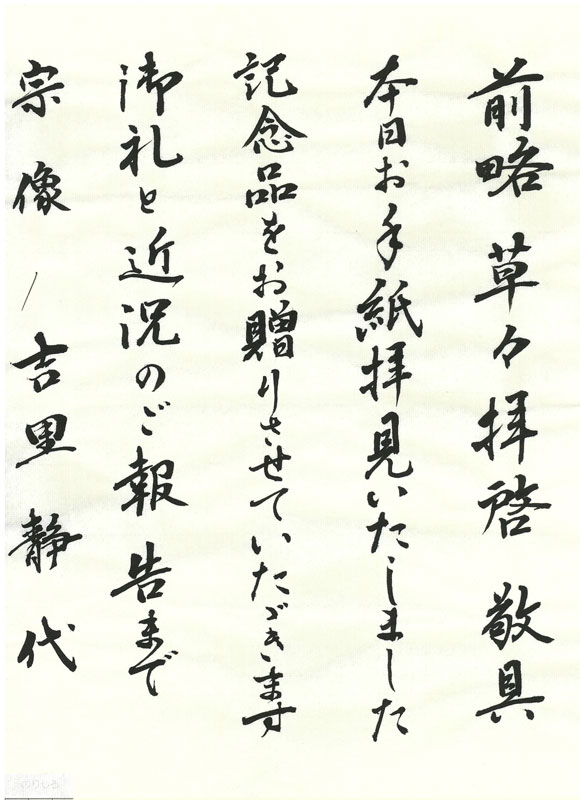 前略 草々 拝啓 敬具
本日お手紙拝見いたしました
記念品をお贈りさせていただきます
御礼と近況のご報告まで
宗像 吉里静代